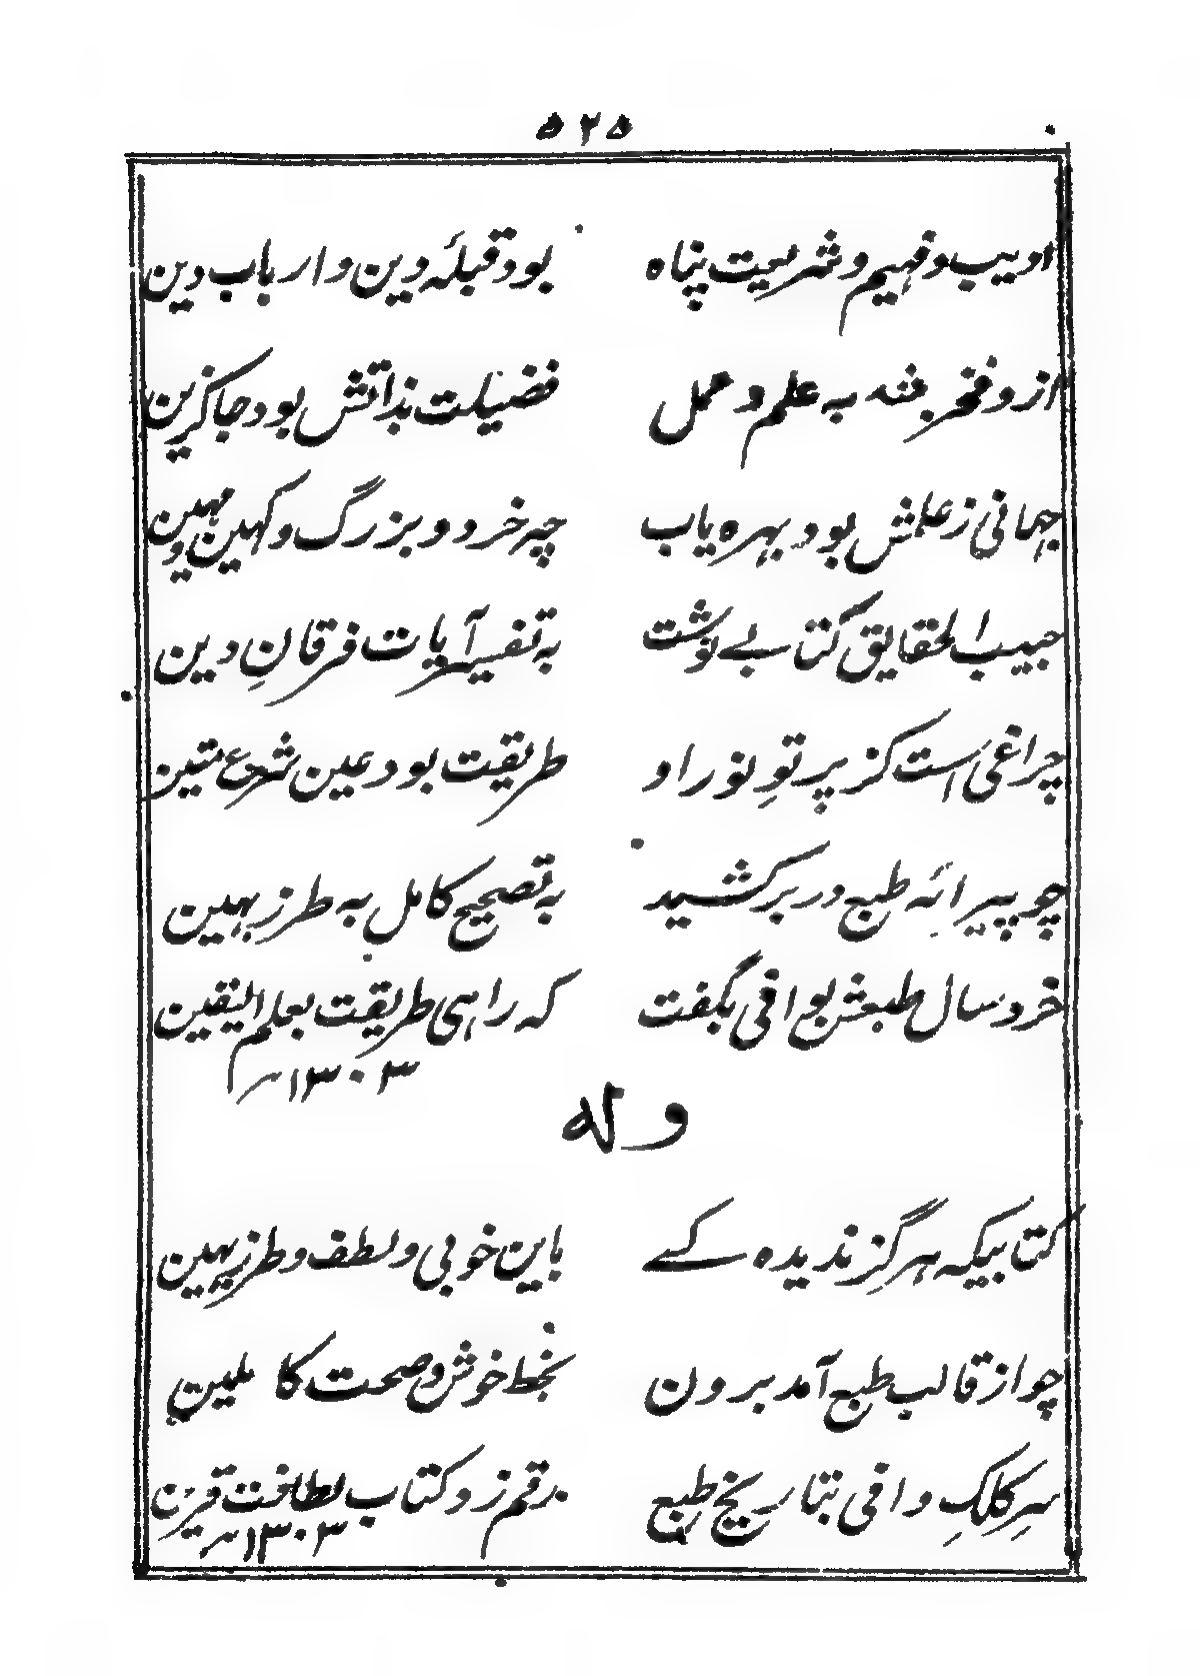 ۵۲۵
ادیب و فہیم و شریعت پناہ بود قبلۂ دین و ارباب دین
از و فخر بخشد بہ علم و عمل فضیلت بذاتش بود جاگزین
جہانی ز علمش بود بہرہ یاب چہ خرد و بزرگ و کہین و مہین
حبیب الحقایق کتابے نوشت بہ تفسیر آیات فرقانِ دین
چراغی است کز پرتوِ نور او طریقت بود عین شرع متین
چو پیرائہ طبع در بر کشید بہ تصحیح کامل بہ طرز بہین
خرد سال طبعش بوافی بگفت کہ راہی طریقت بعلم الیقین
۱۳۰۳ھ
ولہ
کتابیکہ ہرگز ندیدہ کسے باین خوبی و لطف و طرز بہین
چو از قالب طبع آمد برون بخط خوش و صحت کاملین
سرِ کلکِ وافی بتاریخ طبع رقم زد کتاب لطافت قرین
۱۳۰۳ھ